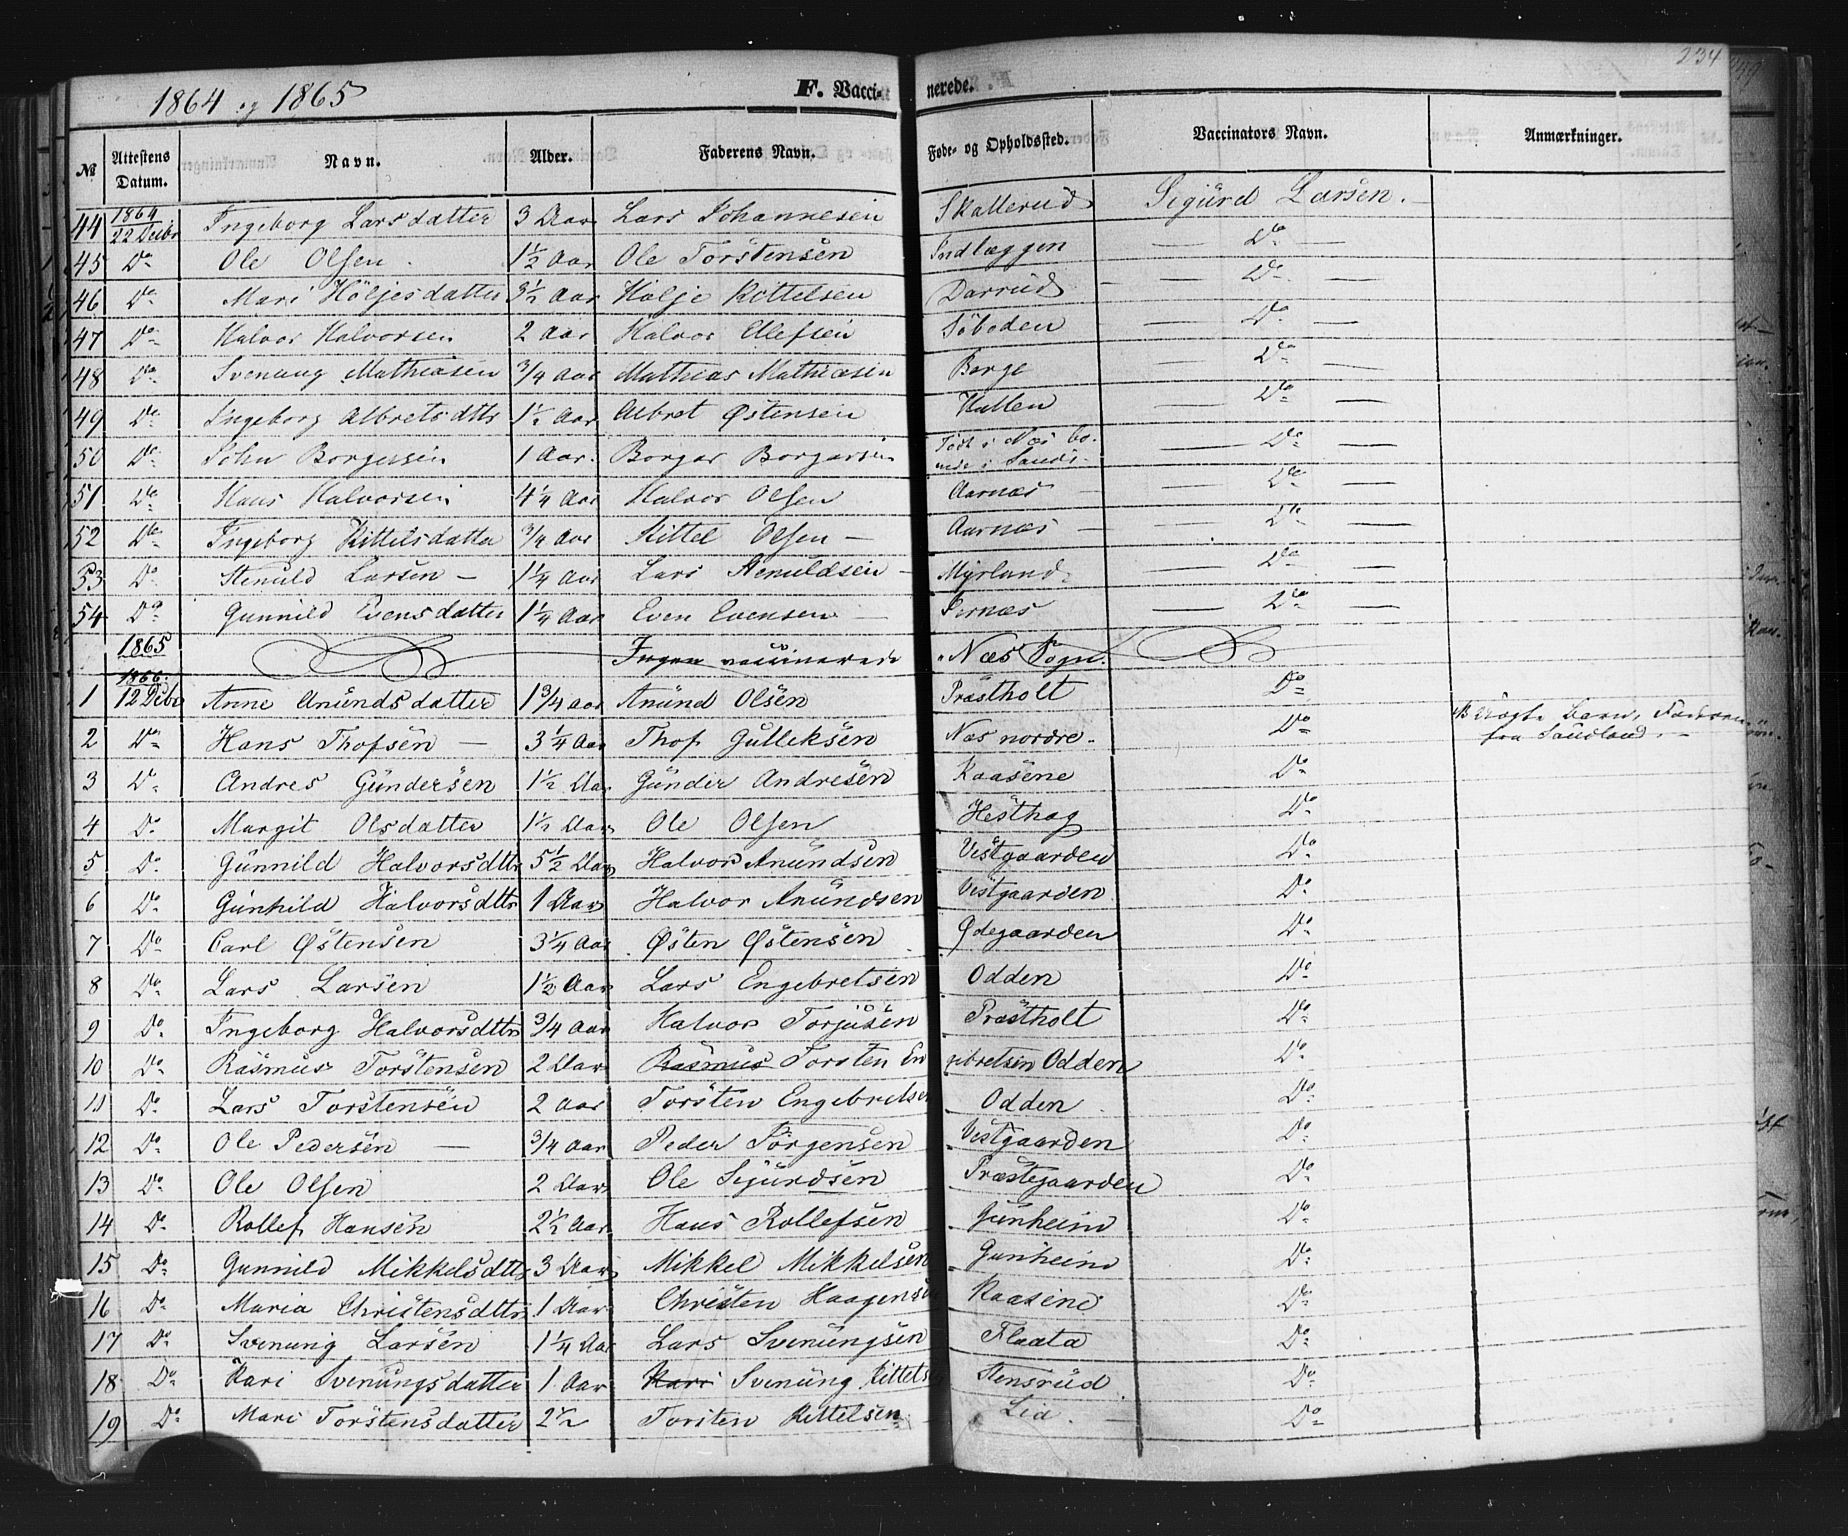 1864 og 1865 F. Vaccinerede. 234
№ Attestens Datum. Navn. Alder. Faderens Navn. Føde- og Opholdssted. Vaccinators Navn. Anmærkninger.
44 1864 22 Decbr Ingeborg Larsdatter 3 Aar Lars Johannesen Skatterud Sigurd Larsen.
45 Do Ole Olsen. 1½ Aar Ole Torstensen Indlæggen — Do —
46 Do Mari Höljesdatter 3½ Aar Hölje Kittelsen Darrud — Do —
47 Do Halvor Halvorsen 2 Aar Halvor Olefsen Söboden — Do —
48 Do Svenung Mathiasen ¾ Aar Mathias Mathiasen Borge — Do —
49 Do Ingeborg Albretsdttr 1½ Aar Albret Østensen Hatten — Do —
50 Do John Borgersen 1 Aar. Borgar Borgarsen Født i Næs bo- ende i Sauds. — Do —
51 Do Hans Halvorsen 4¼ Aar Halvor Olsen Aarnæs — Do —
52 Do Ingeborg Kittelsdatter ¾ Aar Kittel Olsen — Aarnæs — Do —
53 Do Stenuld Larsen — 1¼ Aar Lars Stenuldsen — Myrland — Do —
54 Do Gunnild Evensdatter 1¼ Aar Even Evensen — Sernæs — Do —
1865 Ingen vaccinerede Næs Sogn.
1866.
1 12 Decbr Anne Anundsdatter 1¾ Aar Anund Olsen Præstholt Do
2 Do Hans Thofsen — 3¼ Aar Thof Gulleksen Næs nordre. Do Uægte Barn, Faderen
fra Sandland. —
3 Do Andres Gundersen 1½ Aar Gunder Andresen Kaasene Do
4 Do Margit Olsdatter 1½ Aar Ole Olsen Hesthag Do
5 Do Gunnild Halvorsdttr 5½ Aar Halvor Anundsen Vestgaarden Do
6 Do Gunhild Halvorsdttr 1 Aar Halvor Anundsen Vestgaarden Do
7 Do Carl Østensen 3¼ Aar Østen Østensen Ødegaarden Do
8 Do Lars Larsen 1½ Aar Lars Engebretsen Odden Do
9 Do Ingeborg Halvorsdttr ¾ Aar Halvor Torjusen Præstholt Do
10 Do Rasmus Torstensen 2 Aar Rasmus Torsten Engebretsen Odden Do
11 Do Lars Torstensen 2 Aar Torsten Engebretsen Odden Do
12 Do Ole Pedersen — ¾ Aar Peder Jörgensen Vestgaarden Do
13 Do Ole Olsen 2 Aar Ole Sigurdsen Præstegaarden Do
14 Do Rollef Hansen 2½ Aar Hans Rollefsen Gunheim Do
15 Do Gunnild Mikkelsdttr 3 Aar Mikkel Mikkelsen Gunheim Do
16 Do Maria Christensdttr 1 Aar Christen Haagensen Kaasene Do
17 Do Svenung Larsen 1¼ Aar Lars Svenungsen Flaata Do
18 Do Kari Svenungsdatter 1 Aar Kari Svenung Kittels Stensrud Do
19 Do Mari Torstensdatter 2½ Torsten Kittelsen — Lia. — Do